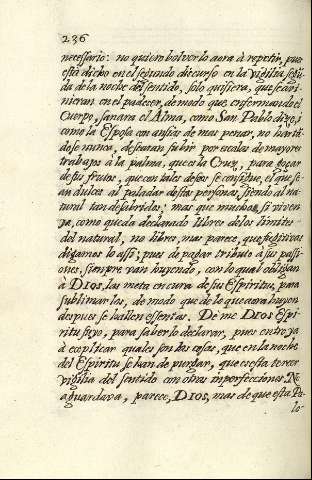 236
necessario: no quiero bolverlo aora à repetir, pues
està dicho en el segundo discurso en la vigilia segũ
da de la noche del sentido, solo quisiera, que se ani-
mieran en el padecer, de modo que, enfermando el
Cuerpo, sanara el Alma, como San Pablo dize, i
como la Esposa con ansias de mas penar, no hartã
dose nunca, desearan subir por escalas de mayores
trabajos à la palma, que es la Cruz, para gozar
de sus frutos, que con tales deseos se consigue, el que se-
an dulces al paladar destas personas, siendo al na-
tural tan desabridos; mas que muchos, si viven
ya, como queda declarado libres de los limites
del natural, no libres, mas parece, que fugitivas
digamos lo assi; pues de pagar tributo à sus passi-
ones, siempre van huyendo, con lo qual obligan
à DIOS, las meta en cura de su Espiritu, para
sublimarlos, de modo que de lo que aora huyen
despues se hallen essentas. De me DIOS Espi-
ritu suyo, para saberlo declarar, pues entro ya
à explicar quales son las cosas, que en la noche
del Espiritu se han de purgar, que es esta tercer
vigilia del sentido con otras imperfecciones. No
aguardava, parece, DIOS, mas de que esta Pa-
lo-